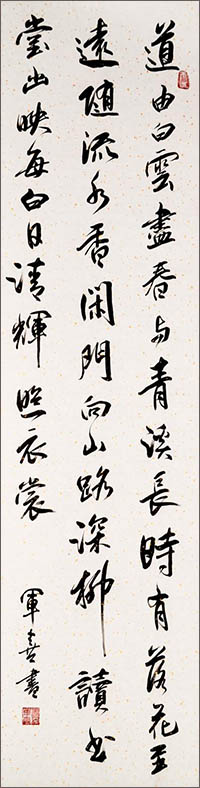 道由白雲盡春与青溪長時有落花至
遠隨流水香閑門向山路深柳讀书
堂幽映每白日清輝照衣裳 軍喜書